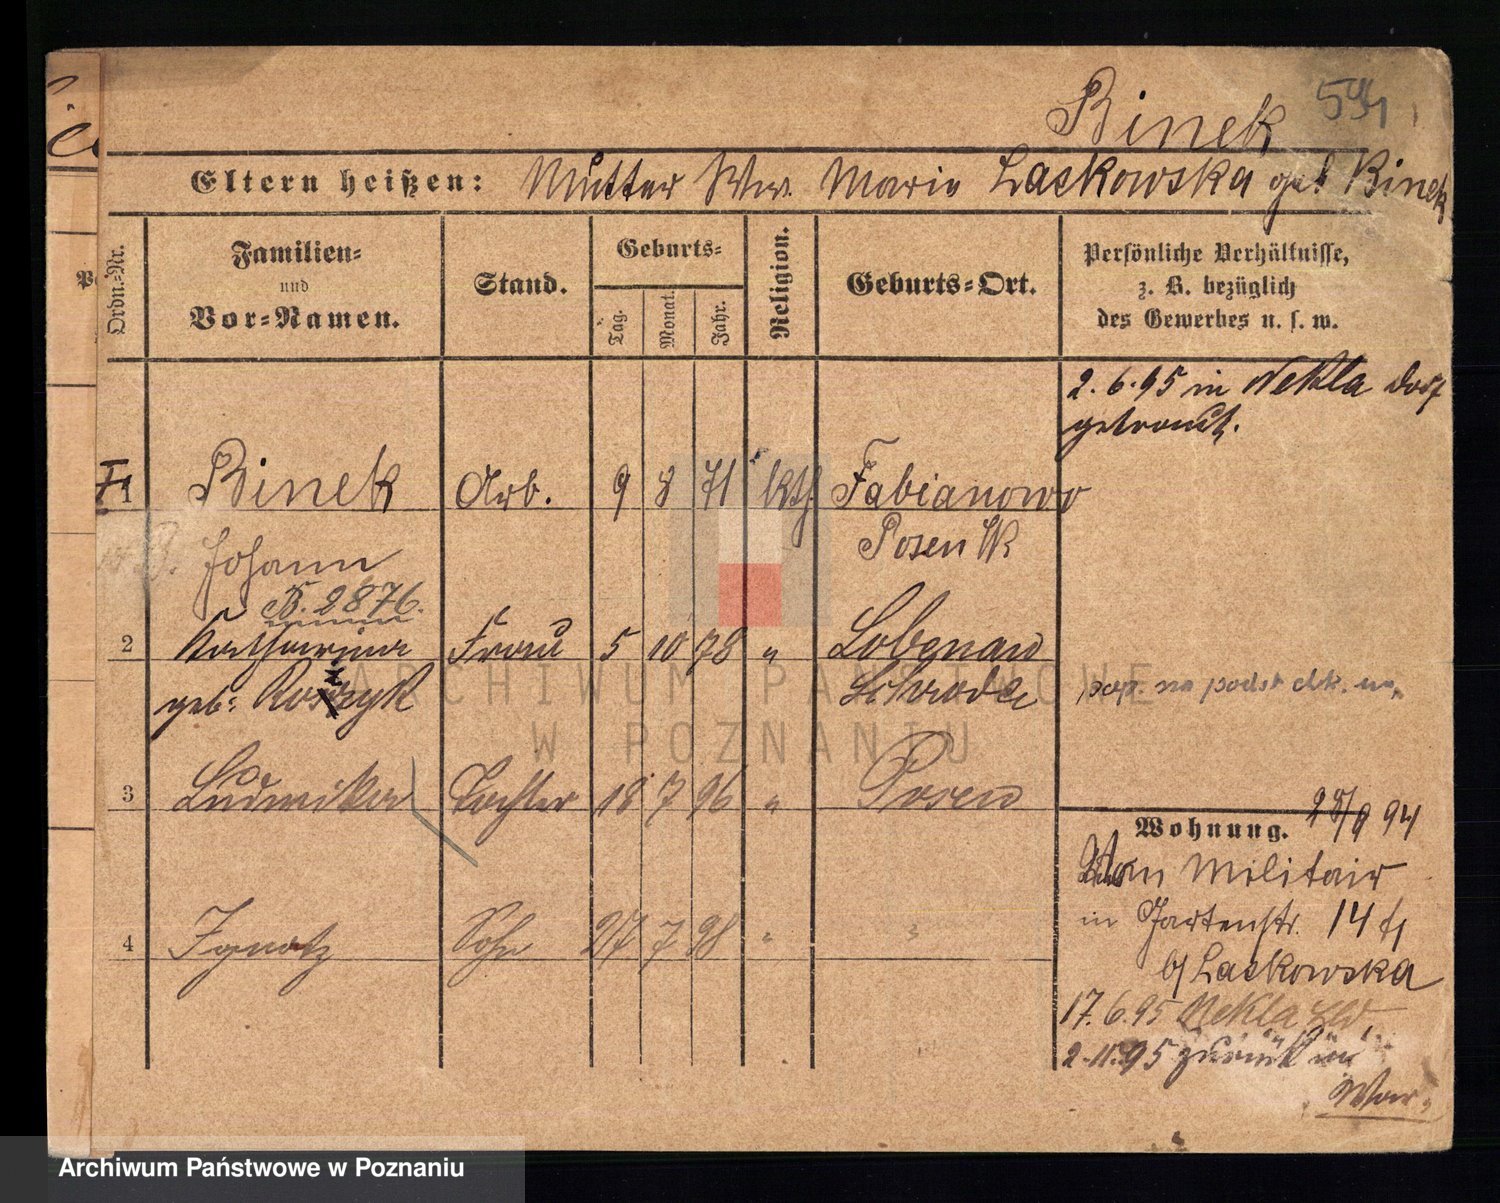 Binek
Eltern heißen: Mutter Ww. Marie Laskowska geb Binek
Ordn.=Nr.
Familien=
und
Vor=Namen.
Stand.
Geburts=
Tag.
Monat.
Jahr.
Religion.
Geburts=Ort.
Persönliche Verhältnisse,
z. B. bezüglich
des Gewerbes u. s. w.
2. 6. 95 in Nekla Dorf
getraut.
1 Binek Arb. 9 8 71 kth. Fabianowo
Johann Posen W
B. 2876.
2 Katharina Frau 5 10 78 " Lobenau
geb: Schroda
pop. na podst dok.
3 Ludwika Tochter 18 7 96 " Posen
Wohnung. 25/9 94
Vom Militair
in Gartenstr. 14
b/ Laskowska
4 Ignatz Sohn 27 7 98 " "
17. 6. 95 Nekla
2. 11. 95 zurück
ARCHIWUM PAŃSTWOWE
W POZNANIU
Archiwum Państwowe w Poznaniu